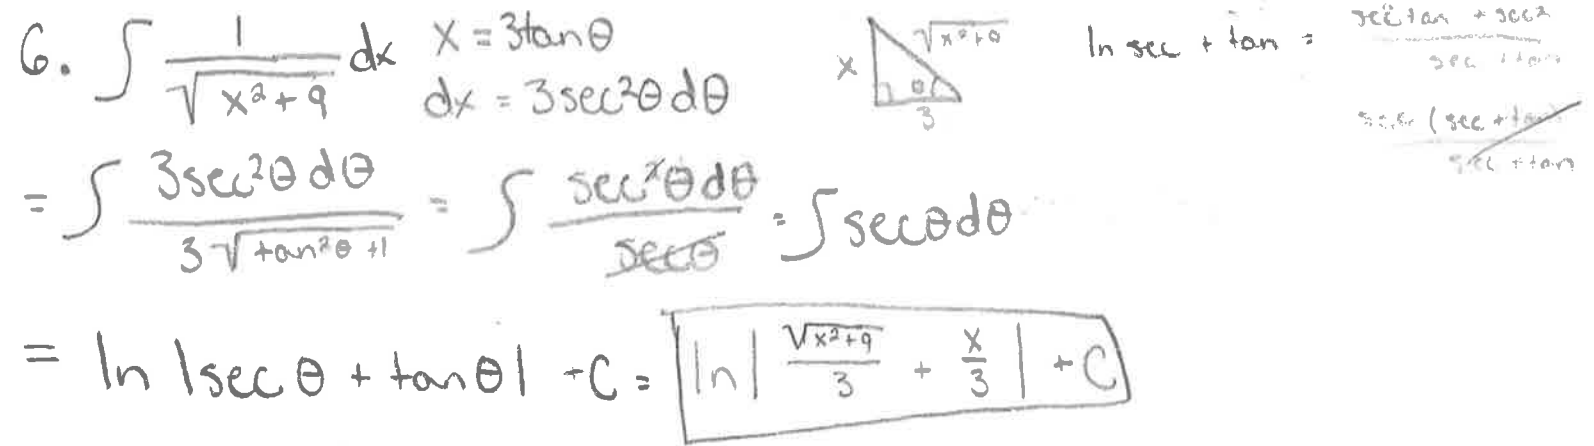 6. ∫ 1/√(x²+9) dx x = 3tanθ
dx = 3sec²θ dθ
x √(x²+9) θ 3
ln sec + tan = (sec tan + sec²)/(sec + tan)
sec (sec + tan)/(sec + tan)
= ∫ 3sec²θ dθ/(3√(tan²θ + 1)) = ∫ sec²θ dθ/secθ = ∫ secθ dθ
= ln |secθ + tanθ| + C = ln | √(x²+9)/3 + x/3 | + C